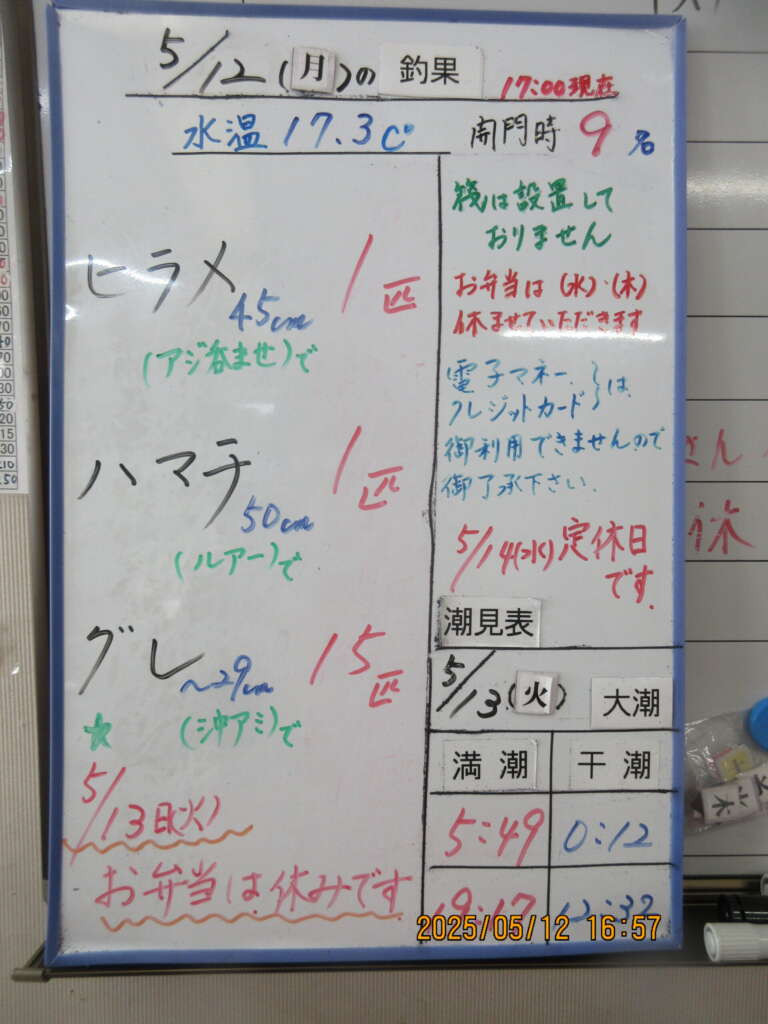 5/12(月)の 釣果 17:00現在
水温 17.3℃ 開門時 9名
ヒラメ 45cm 1匹
(アジ呑ませ)で
ハマチ 50cm 1匹
(ルアー)で
グレ ~29cm 15匹
★ (沖アミ)で
5/13日(火)
お弁当は休みです
筏は設置して
おりません
お弁当は(水)・(木)
休ませていただきます
電子マネー、
クレジットカード } は、
御利用できませんので
御了承下さい。
5/14(水)定休日
です。
潮見表
5/13(火) 大潮
満潮 干潮
5:49 0:12
19:17 12:32
2025/05/12 16:57
さん
休